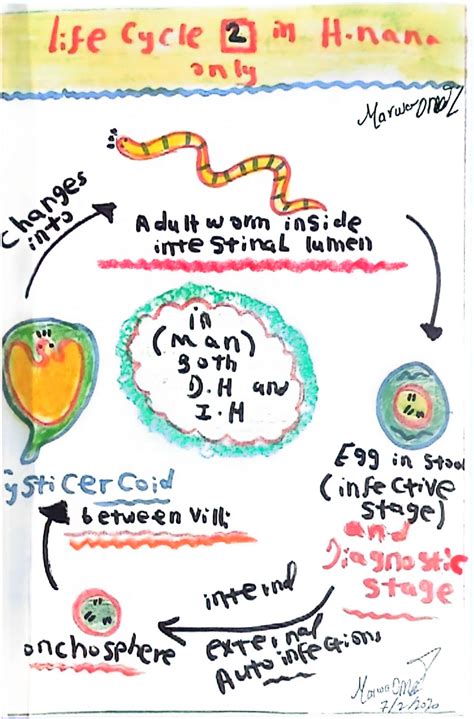 life Cycle 2 in H.nana
only
Marwa Omar
Changes
into
Adult worm inside
intestinal lumen
in
(man)
Both
D.H and
I.H
Egg in stool
(infective
stage)
and
Diagnostic
stage
internal
external
Autoinfections
onchosphere
ysticercoid
between Villi
Marwa Omar
7/2/2020